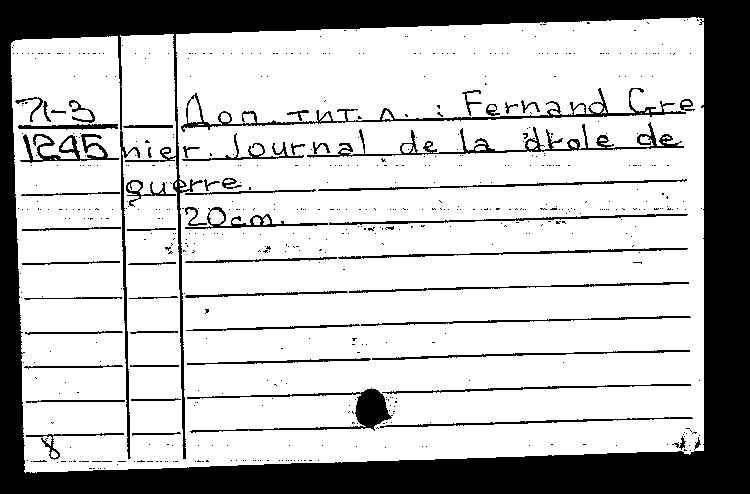 71-3 Доп. тит. л. : Fernand Gre
1245 nier. Journal de la drole de
guerre.
20cm.
8